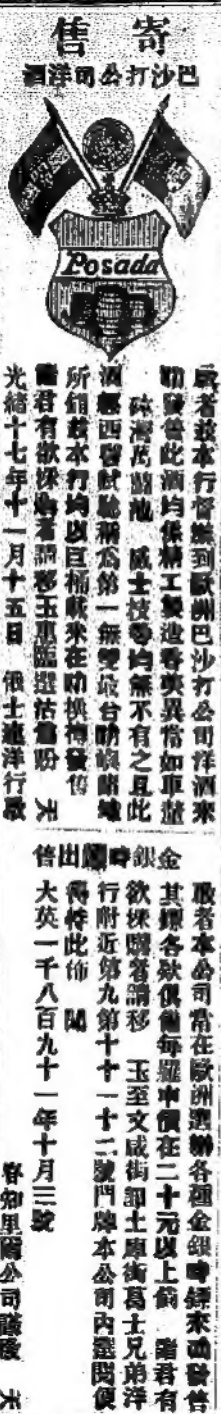 寄售
巴沙打公司洋酒
Posada
啟者茲本行督辦到歐洲巴沙打公司洋酒來
叻發售此酒均係精工製造香美異常如車釐
砵灣蘭池 威士技等均無不有之且此
酒經西醫試驗稱為第一無雙最合叻
所銷茲本行均以巨桶載來在叻換樽發售
諸君有欲採購者請移玉惠臨選沽是盼 天
光緒十七年十一月十五日 俄士連洋行啟
金銀時鏢出售
啟者本公司常在歐洲選辦各種金銀時鏢來叻發售
其鏢各款俱備每羅申價在二十元以上倘 諸君有
欲採購者請移 玉至文咸街卽土庫街葛士兄弟洋
行附近第九第十十一十二號門牌本公司內選閱便
得特此佈 聞
大英一千八百九十一年十月三號
知里公司謹啟 天